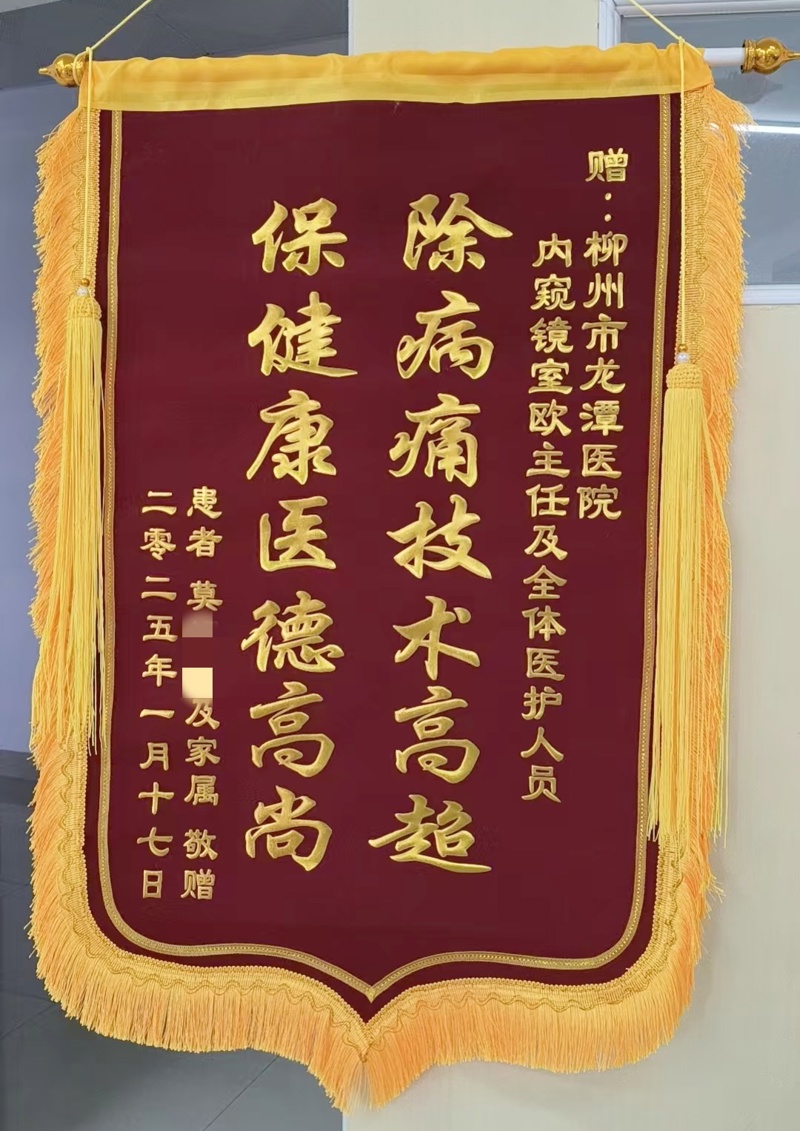 赠：柳州市龙潭医院
内窥镜室欧主任及全体医护人员
除病痛技术高超
保健康医德高尚
患者 莫 及家属 敬赠
二零二五年一月十七日